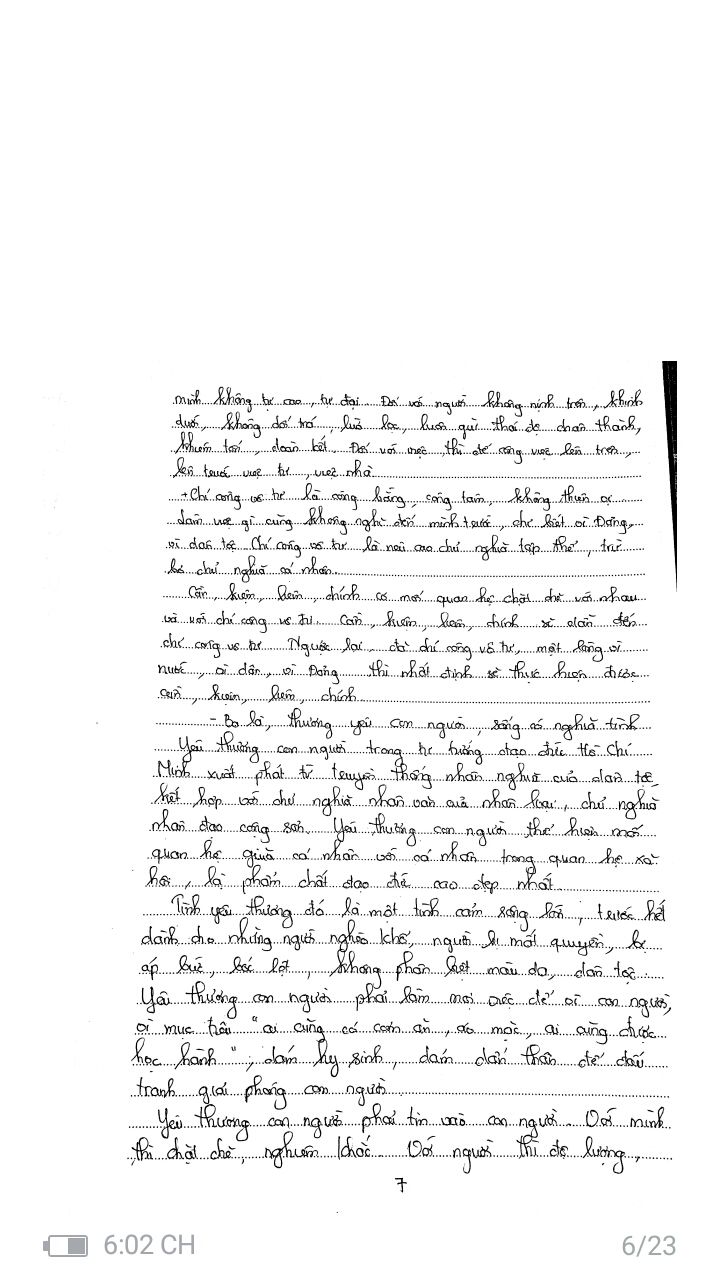 mình không tự cao, tự đại. Đối với người không nịnh trên, khinh
dưới, không dối trá, lừa lọc, luôn giữ thái độ chân thành,
khiêm tốn, đoàn kết. Đối với việc thì để công việc lên trên,
lên trước việc tư, việc nhà
+ Chí công vô tư là công bằng, công tâm, không thiên vị
làm việc gì cũng không nghĩ đến mình trước, chỉ biết vì Đảng,
vì dân tộc. Chí công vô tư là nêu cao chủ nghĩa tập thể, trừ
bỏ chủ nghĩa cá nhân.
Cần, kiệm, liêm, chính có mối quan hệ chặt chẽ với nhau
và với chí công vô tư. Cần, kiệm, liêm, chính sẽ dẫn đến
chí công vô tư. Ngược lại, đã chí công vô tư, một lòng vì
nước, vì dân, vì Đảng thì nhất định sẽ thực hiện được
cần, kiệm, liêm, chính
- Ba là, thương yêu con người, sống có nghĩa tình
Yêu thương con người trong tư tưởng đạo đức Hồ Chí
Minh xuất phát từ truyền thống nhân nghĩa của dân tộc,
kết hợp với chủ nghĩa nhân văn của nhân loại, chủ nghĩa
nhân đạo cộng sản. Yêu thương con người thể hiện mối
quan hệ giữa cá nhân với cá nhân trong quan hệ xã
hội, là phẩm chất đạo đức cao đẹp nhất.
Tình yêu thương đó là một tình cảm rộng lớn, trước hết
dành cho những người nghèo khổ, người bị mất quyền, bị
áp bức, bóc lột, không phân biệt màu da, dân tộc.
Yêu thương con người phải làm mọi việc để vì con người,
vì mục tiêu "ai cũng có cơm ăn, áo mặc, ai cũng được
học hành", dám hy sinh, dám dấn thân để đấu
tranh giải phóng con người
Yêu thương con người phải tin vào con người. Với mình
thì chặt chẽ, nghiêm khắc. Với người thì độ lượng,
7
6:02 CH
6/23